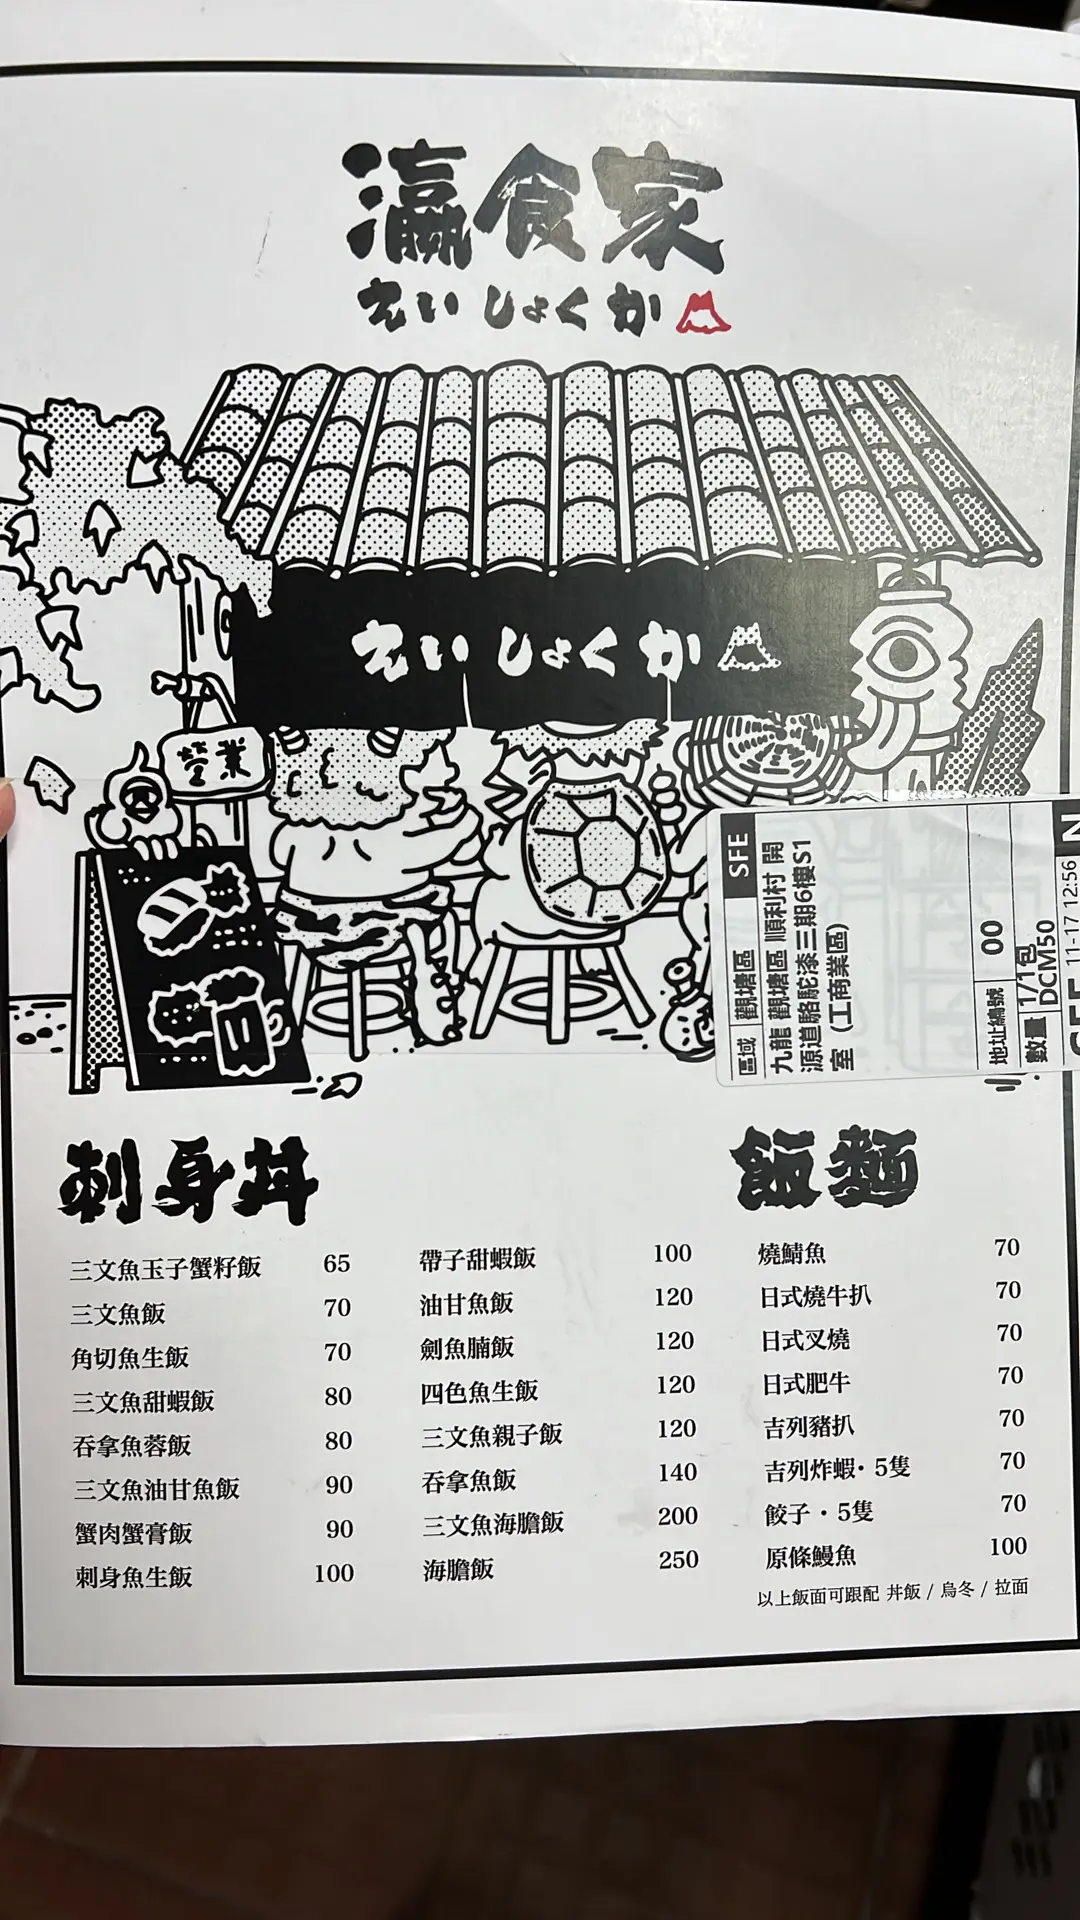 瀛食家
えいしょくか
えいしょくか
營業
SFE
區域 觀塘區
九龍 觀塘區 順利村 開
源道駱駝漆三期6樓S1
室 (工商業區)
地址編號 00
數量 1/1包
DCM50
11-17 12:56
刺身丼
三文魚玉子蟹籽飯 65
三文魚飯 70
角切魚生飯 70
三文魚甜蝦飯 80
吞拿魚蓉飯 80
三文魚油甘魚飯 90
蟹肉蟹膏飯 90
刺身魚生飯 100
帶子甜蝦飯 100
油甘魚飯 120
劍魚腩飯 120
四色魚生飯 120
三文魚親子飯 120
吞拿魚飯 140
三文魚海膽飯 200
海膽飯 250
飯麵
燒鯖魚 70
日式燒牛扒 70
日式叉燒 70
日式肥牛 70
吉列豬扒 70
吉列炸蝦·5隻 70
餃子·5隻 70
原條鰻魚 100
以上飯面可跟配 丼飯 / 烏冬 / 拉面